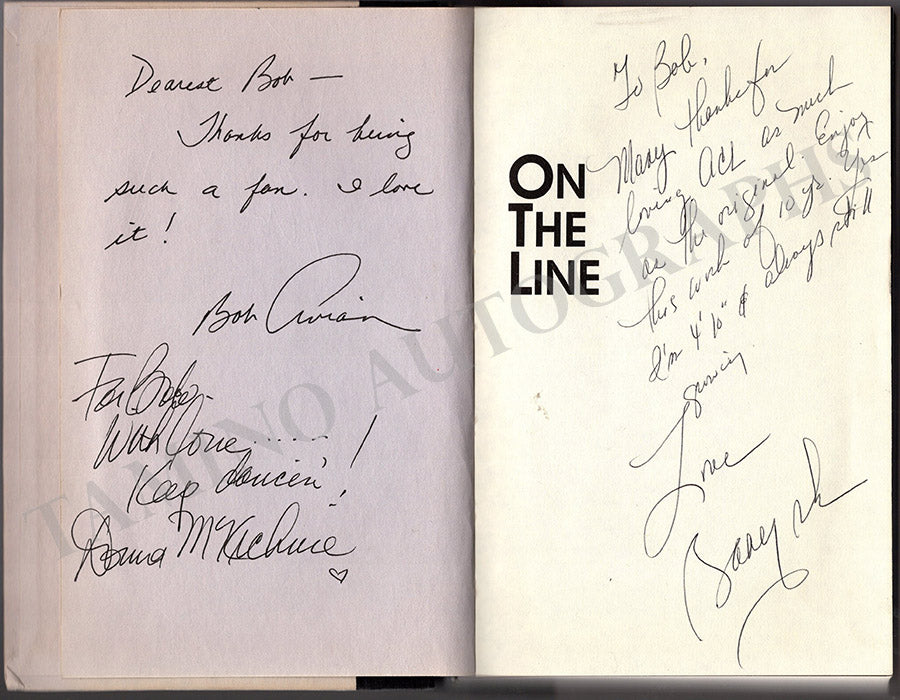 Dearest Bob —
Thanks for being
such a fan. I love
it!
Bob Avian
For Bob-
With love......!
Keep dancin'!
Donna McKechnie
ON
THE
LINE
To Bob,
Many thanks for
loving ACL as much
as the original. Enjoy
this work of 10 yrs. Yes
I'm 4' 10" & always still
growing.
Love
Baayork
TAMINO AUTOGRAPHS